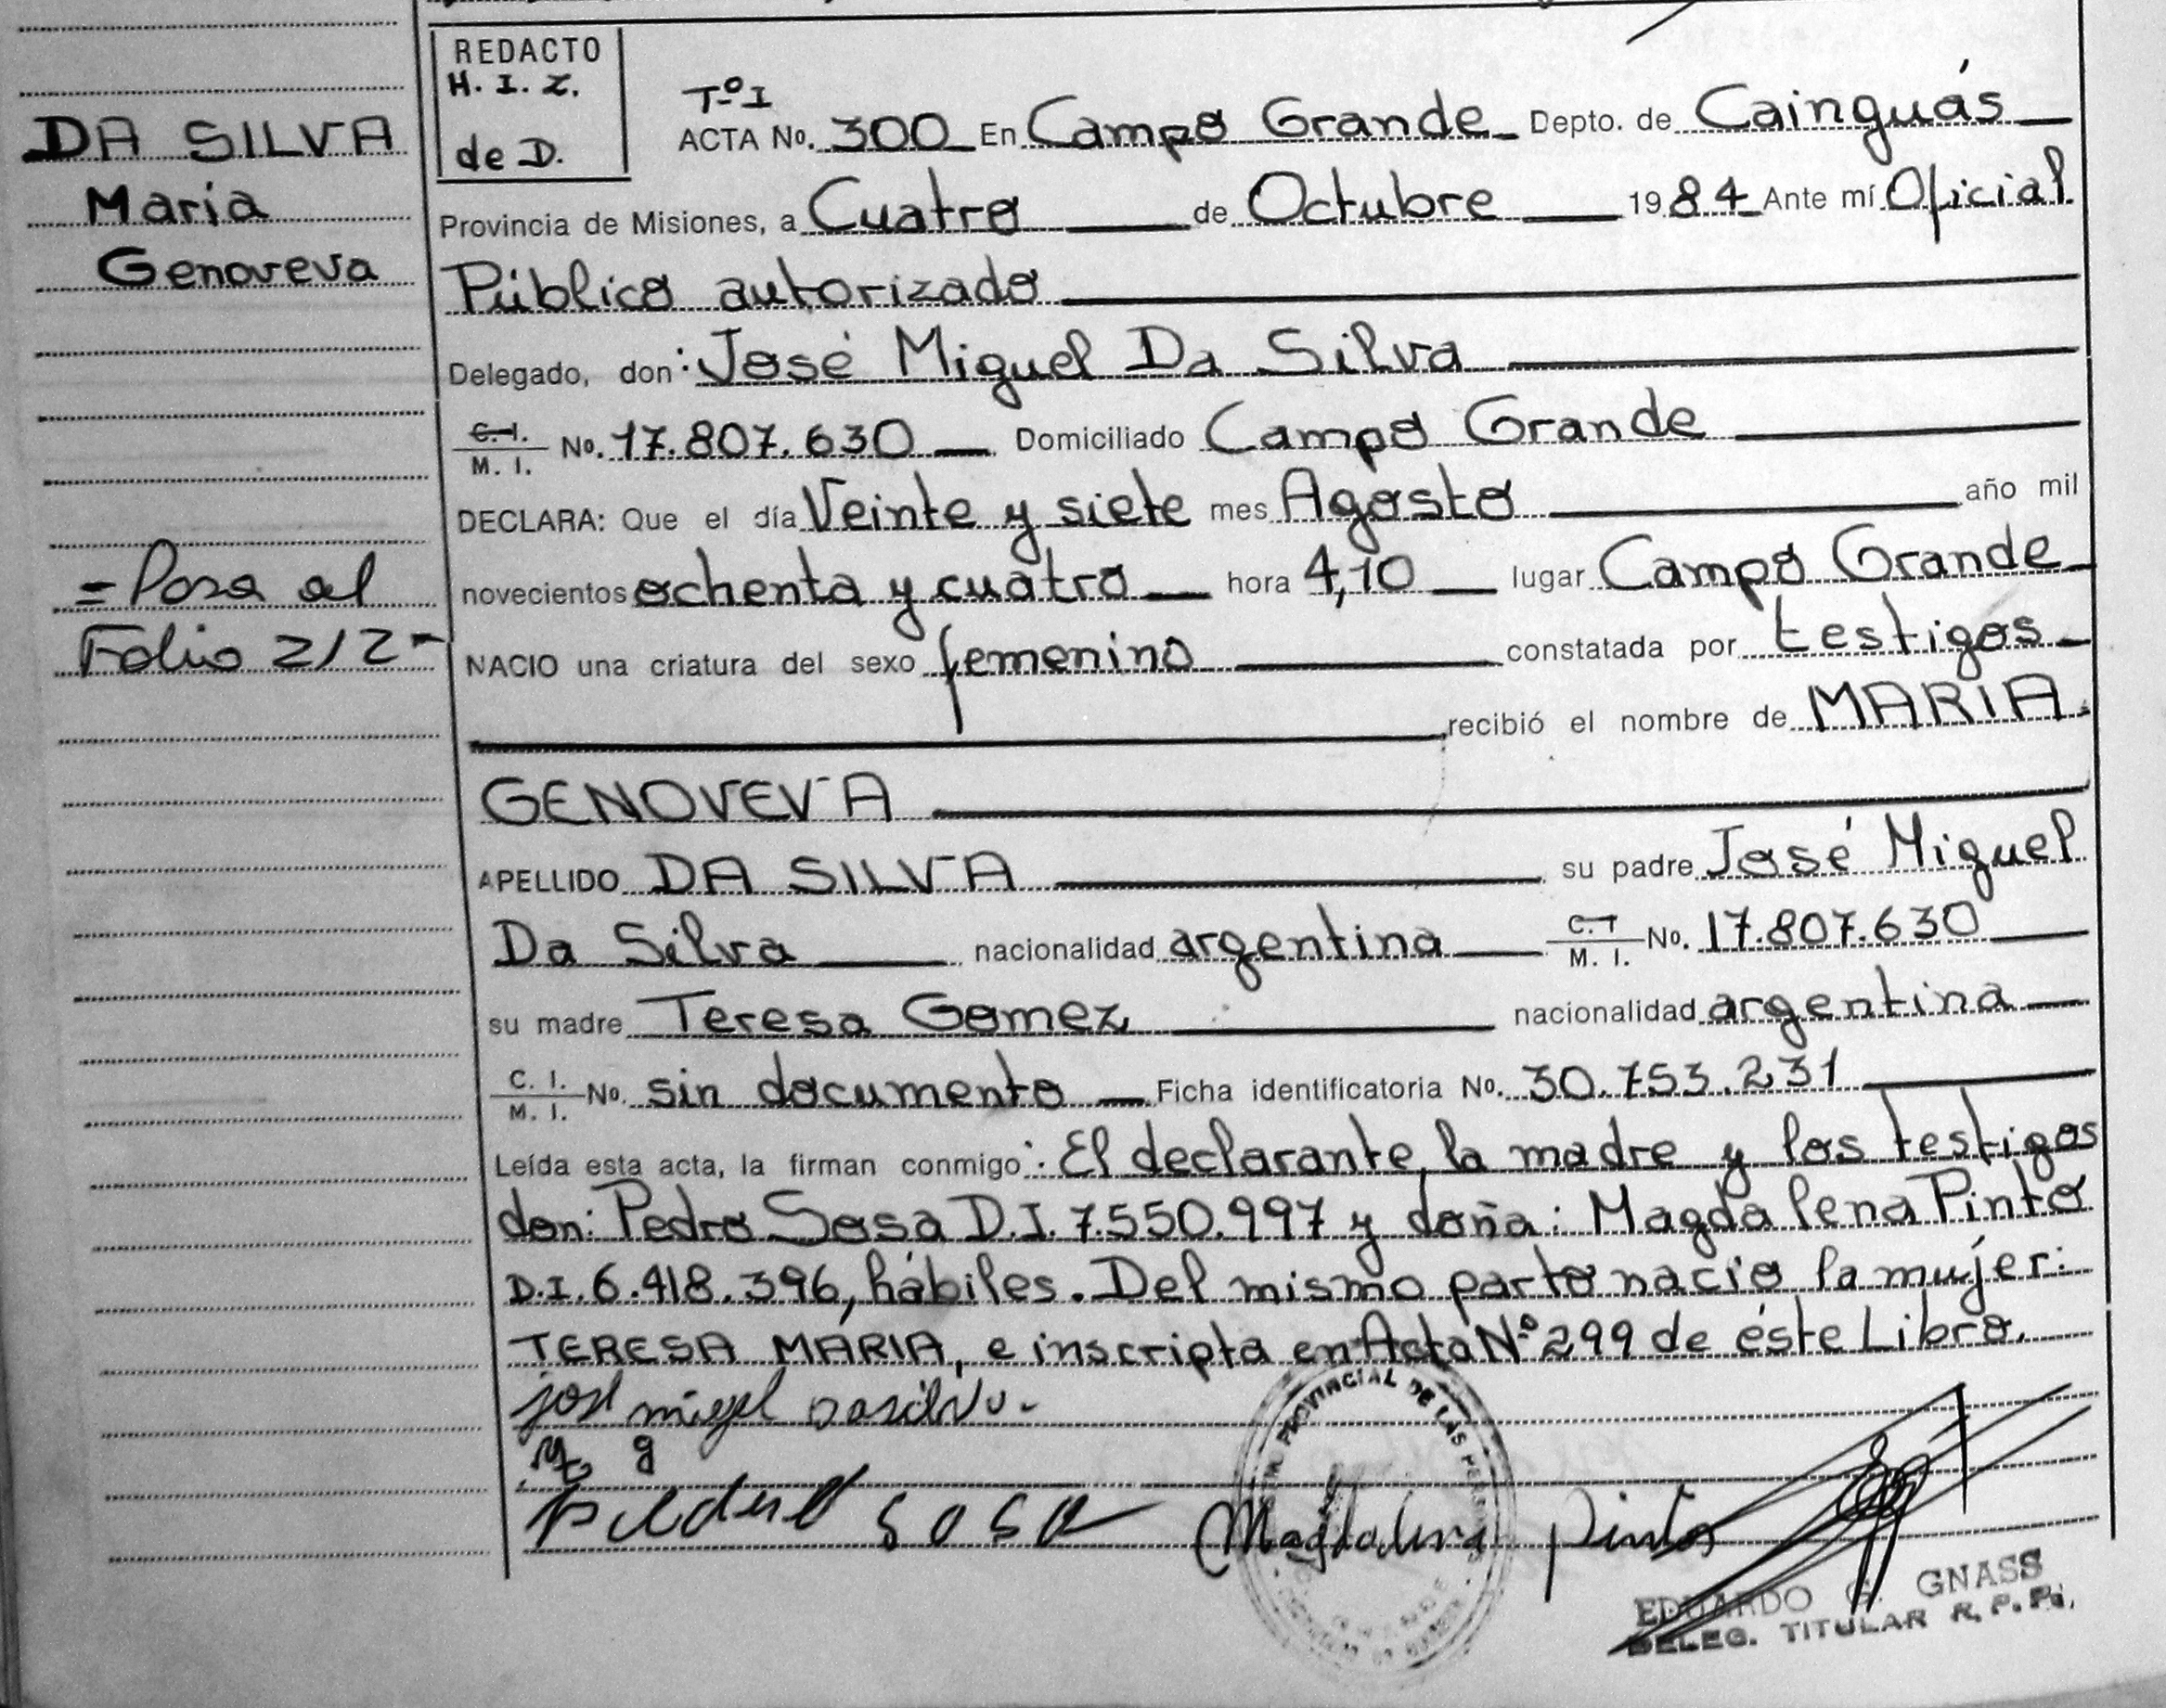 DA SILVA
María
Genoveva
= Pasa al
Folio 212-
REDACTO
H. I. Z.
de D.
Tº I
ACTA No. 300 En Campo Grande Depto. de Cainguás
Provincia de Misiones, a Cuatro de Octubre 1984 Ante mí Oficial
Público autorizado
Delegado, don: José Miguel Da Silva
C. I. / M. I. No. 17.807.630 Domiciliado Campo Grande
DECLARA: Que el día Veinte y siete mes Agosto año mil
novecientos ochenta y cuatro hora 4,10 lugar Campo Grande
NACIO una criatura del sexo femenino constatada por testigos
recibió el nombre de MARIA
GENOVEVA
APELLIDO DA SILVA su padre José Miguel
Da Silva nacionalidad argentina C. I / M. I. No. 17.807.630
su madre Teresa Gomez nacionalidad argentina
C. I. / M. I. No. sin documento Ficha identificatoria No. 30.753.231
Leída esta acta, la firman conmigo: El declarante, la madre y los testigos
don: Pedro Sosa D.I. 7.550.997 y doña: Magdalena Pinto
D.I. 6.418.396, hábiles. Del mismo parto nació la mujer:
TERESA MARIA, e inscripta en Acta Nº 299 de éste Libro.
PROVINCIAL DE LAS
Sosa Magdalena Pinto
EDUARDO GNASS
DELEG. TITULAR R. P. Ps.